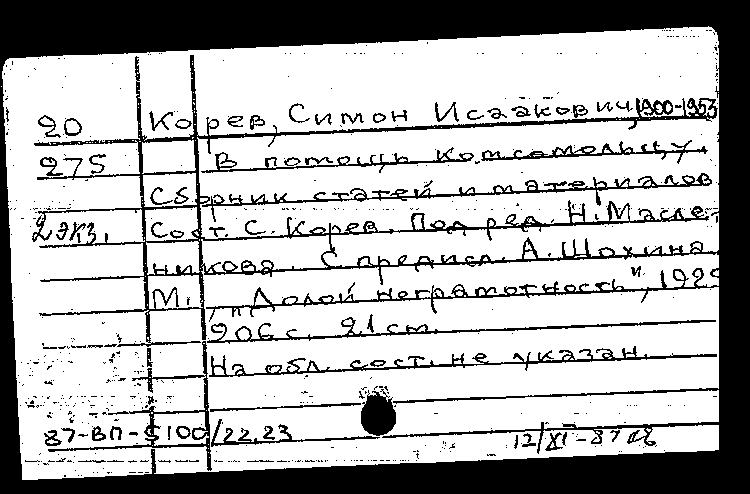 20 Корев, Симон Исаакович, 1900-1953
275 В помощь комсомольцу.
Сборник статей и материалов
2 экз. Сост. С. Корев. Под ред. Н. Масле-
никова. С предисл. А. Шохина.
М., „Долой неграмотность", 192
206 с. 21 см.
На обл. сост. не указан.
87-ВП-5100/22.23
12/XI-87